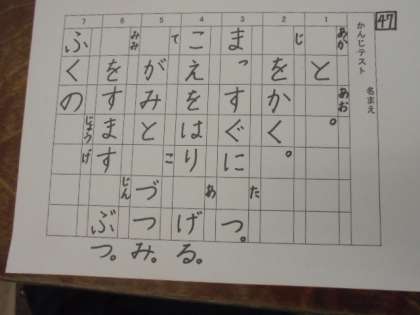 47
かんじテスト 名まえ
1 2 3 4 5 6 7
あかとあお。
じをかく。
まっすぐにたつ。
こえをはりあげる。
てがみとこづつみ。
みみをすますじんぶつ。
ふくのじょうげ